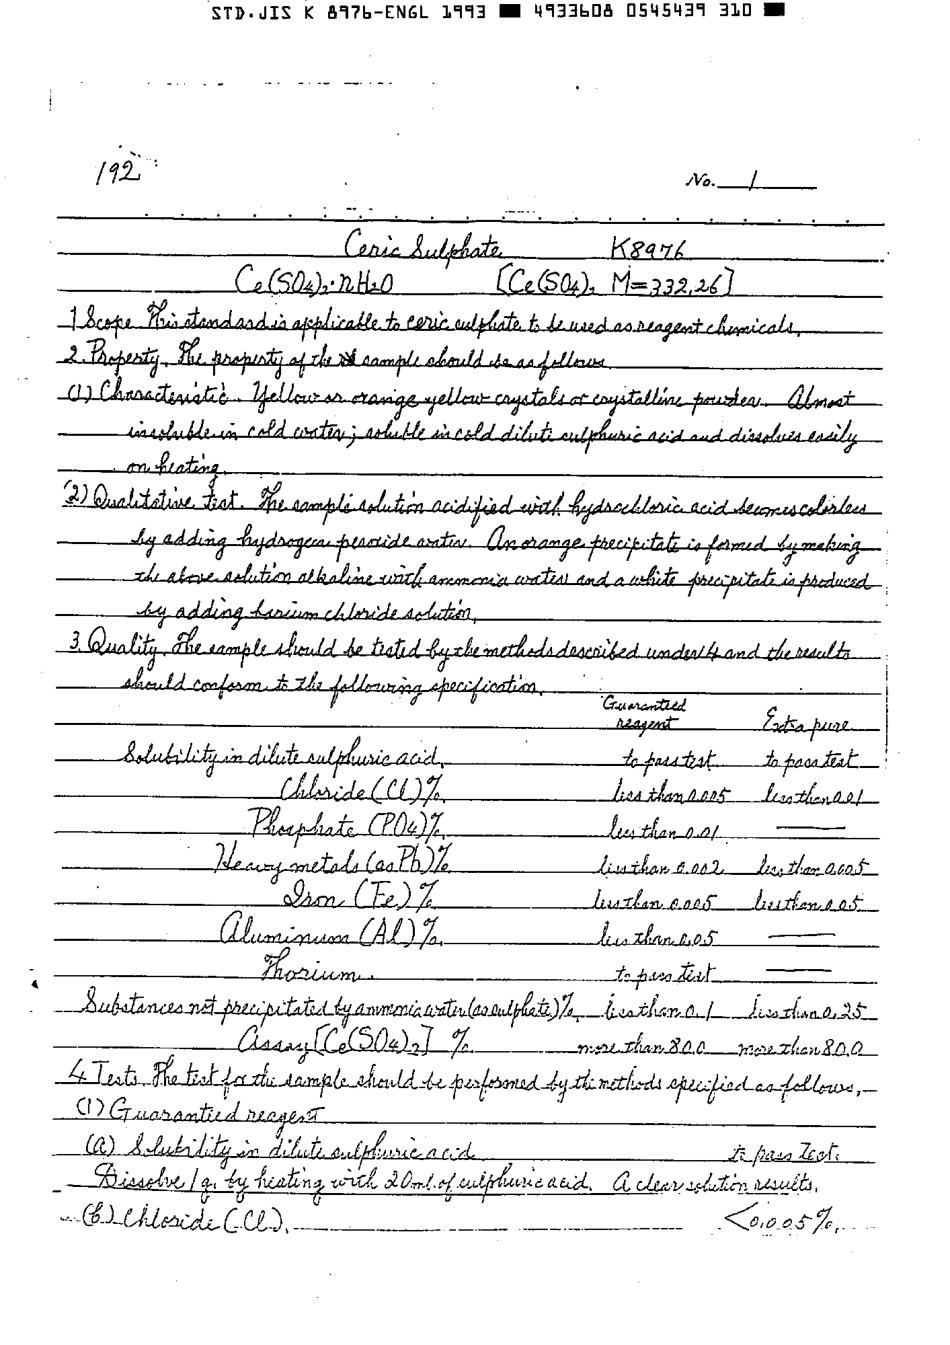 STD.JIS K 8976-ENGL 1993 ■ 4933608 0545439 310 ■
192
No. 1
Ceric Sulphate K8976
Ce(SO4)2·nH2O [Ce(SO4)2 M=332.26]
1 Scope This standard is applicable to ceric sulphate to be used as reagent chemicals.
2. Property. The property of the sample should be as follows
(1) Characteristic. Yellow or orange yellow crystals or crystalline powder. Almost
insoluble in cold water; soluble in cold dilute sulphuric acid and dissolves easily
on heating.
(2) Qualitative test. The sample solution acidified with hydrochloric acid becomes colorless
by adding hydrogen peroxide water. An orange precipitate is formed by making
the above solution alkaline with ammonia water and a white precipitate is produced
by adding barium chloride solution.
3. Quality. The sample should be tested by the methods described under 4 and the results
should conform to the following specification.
Guarantied reagent Extra pure
Solubility in dilute sulphuric acid. to pass test to pass test
Chloride (Cl) %. less than 0.005 less than 0.01
Phosphate (PO4) %. less than 0.01 ——
Heavy metals (as Pb) %. less than 0.002 less than 0.005
Iron (Fe) % less than 0.005 less than 0.05
Aluminum (Al) %. less than 0.05 ——
Thorium. to pass test ——
Substances not precipitated by ammonia water (as sulphate) %. less than 0.1 less than 0.25
Assay [Ce(SO4)2] %. more than 80.0 more than 80.0
4 Tests. The test for the sample should be performed by the methods specified as follows,
(1) Guarantied reagent
(a) Solubility in dilute sulphuric acid to pass test.
Dissolve 1 g. by heating with 20 ml. of sulphuric acid. A clear solution results.
(b) Chloride (Cl). <0.005%.